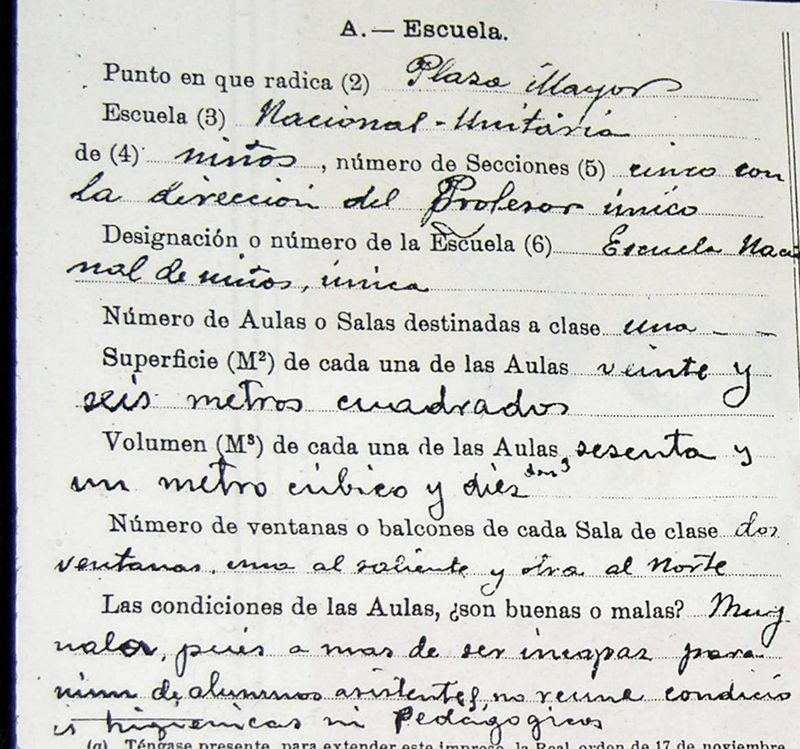 A.— Escuela.
Punto en que radica (2) Plaza Mayor
Escuela (3) Nacional-Unitaria
de (4) niños, número de Secciones (5) cinco con
la dirección del Profesor único
Designación o número de la Escuela (6) Escuela Nacio
nal de niños, única
Número de Aulas o Salas destinadas a clase una
Superficie (M²) de cada una de las Aulas veinte y
seis metros cuadrados
Volumen (M³) de cada una de las Aulas sesenta y
un metro cúbico y diez
Número de ventanas o balcones de cada Sala de clase dos
ventanas, una al saliente y otra al Norte
Las condiciones de las Aulas, ¿son buenas o malas? Muy
pues a mas de ser incapaz para
de alumnos asistentes, no reune condicio
higienicas ni Pedagogicas
(a) Téngase presente, para extender este impreso, la Real orden de 17 de noviembre